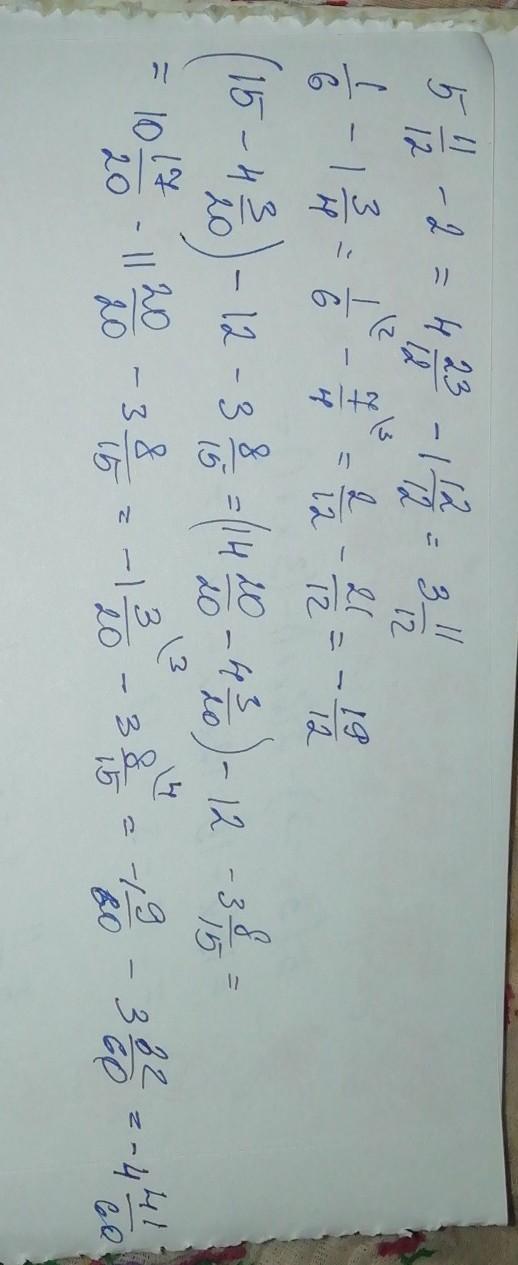 5 11/12 - 2 = 4 23/12 - 1 12/12 = 3 11/12
1/6 - 1 3/4 = 1/6 \2 - 7/4 \3 = 2/12 - 21/12 = - 19/12
(15 - 4 3/20) - 12 - 3 8/15 = (14 20/20 - 4 3/20) - 12 - 3 8/15 =
= 10 17/20 - 11 20/20 - 3 8/15 = - 1 3/20 \3 - 3 8/15 \4 = - 1 9/60 - 3 32/60 = - 4 41/60